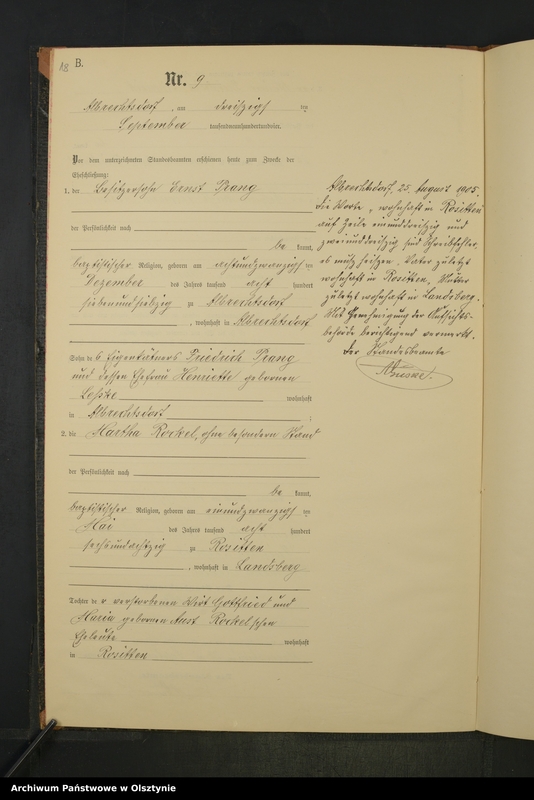 18
B.
Nr. 9
Albrechtsdorf, am dreißigsten
September tausendneunhundertundvier.
Vor dem unterzeichneten Standesbeamten erschienen heute zum Zwecke der
Eheschließung:
1. der Besitzersohn Ernst Prang
der Persönlichkeit nach
be kannt,
baptistischer Religion, geboren am achtundzwanzigsten
Dezember des Jahres tausend acht hundert
siebenundsiebzig zu Albrechtsdorf
, wohnhaft in Albrechtsdorf
Sohn des Eigentümers Friedrich Prang
und dessen Ehefrau Henriette geborenen
wohnhaft
in Albrechtsdorf ;
2. die Martha Rockel, ohne besondern Stand
der Persönlichkeit nach
be kannt,
baptistischer Religion, geboren am einundzwanzigsten
Mai des Jahres tausend acht hundert
sechsundachtzig zu Rositten
, wohnhaft in Landsberg
Tochter der verstorbenen Wirt Gottfried und
Maria geborenen Rockel'schen
Eheleute wohnhaft
in Rositten
Albrechtsdorf, 25. August 1905.
Die Worte „wohnhaft in Rositten“
auf Zeile einunddreißig und
zweiunddreißig sind Schreibfehler,
es muß heißen: Vater zuletzt
wohnhaft in Rositten, Mutter
zuletzt wohnhaft in Landsberg.
Mit Genehmigung der Aufsichts-
behörde berichtigend vermerkt.
Der Standesbeamte
Archiwum Państwowe w Olsztynie